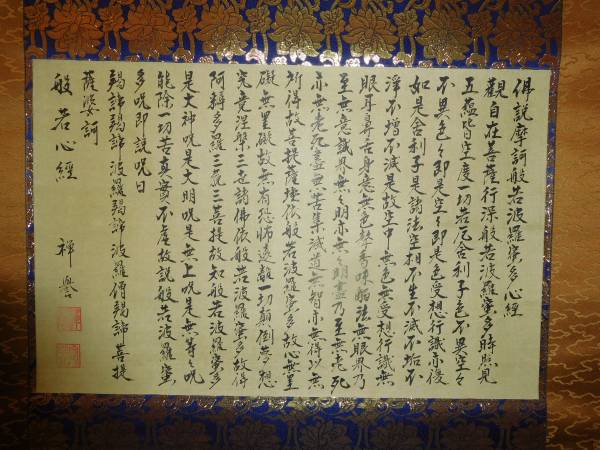 佛説摩訶般若波羅蜜多心經
觀自在菩薩行深般若波羅蜜多時照見
五蘊皆空度一切苦厄舍利子色不異空々
不異色々即是空々即是色受想行識亦復
如是舍利子是諸法空相不生不滅不垢不
淨不增不減是故空中無色無受想行識無
眼耳鼻舌身意無色聲香味觸法無眼界乃
至無意識界無々明亦無々明盡乃至無老死
亦無老死盡無苦集滅道無智亦無得以無
所得故菩提薩埵依般若波羅蜜多故心無罣
礙無罣礙故無有恐怖遠離一切顛倒夢想
究竟涅槃三世諸佛依般若波羅蜜多故得
阿耨多羅三藐三菩提故知般若波羅蜜多
是大神呪是大明呪是無上呪是無等々呪
能除一切苦真實不虚故説般若波羅蜜
多呪即説呪曰
羯諦羯諦波羅羯諦波羅僧羯諦菩提
薩婆訶
般若心經
禅譽